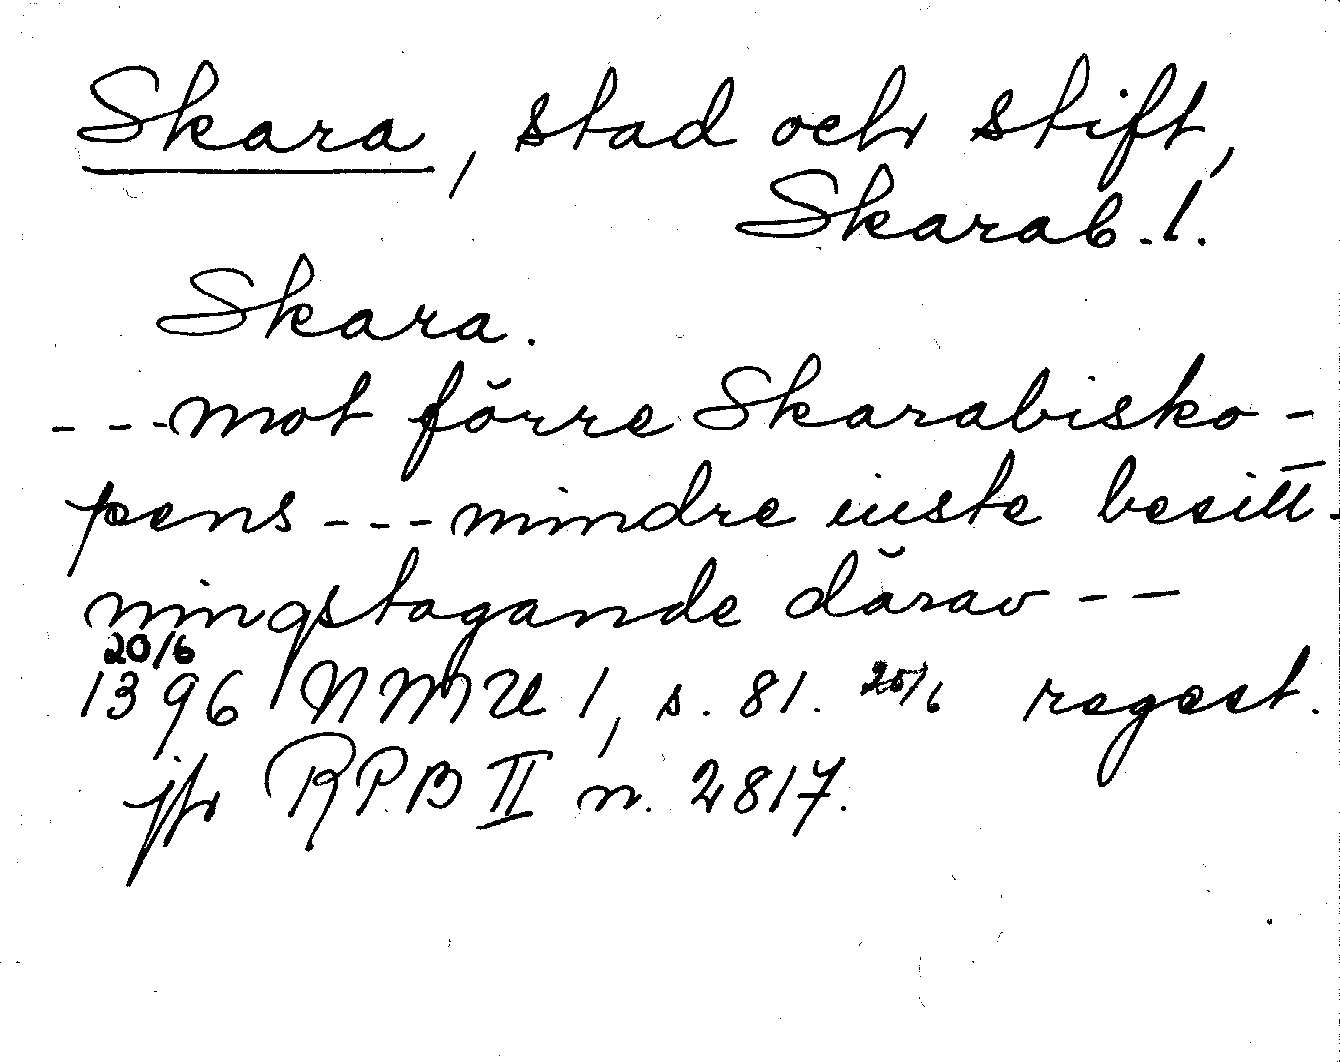 Skara, stad och stift,
Skarab.l.
Skara.
---mot förre Skarabisko-
pens---mindre iuste besitt-
ningstagande därav--
20/6
1396 NMU 1, s. 81. 20/6 regest.
jfr RPB II n. 2817.